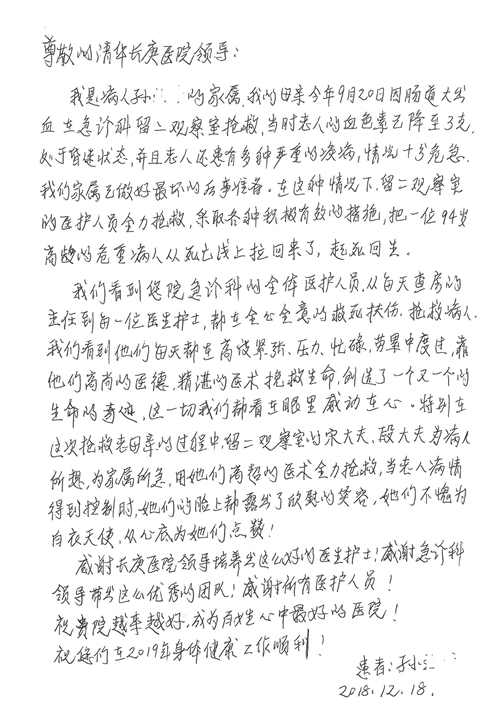 尊敬的清华长庚医院领导：
我是病人孙 的家属，我的母亲今年9月20日因肠道大出
血在急诊科留二观察室抢救，当时老人的血色素已降至3克，
处于昏迷状态，并且老人还患有多种严重的疾病，情况十分危急.
我们家属已做好最坏的后事准备。在这种情况下，留二观察室
的医护人员全力抢救，采取各种积极有效的措施，把一位94岁
高龄的危重病人从死亡线上拉回来了，起死回生。
我们看到您院急诊科的全体医护人员，从每天查房的
主任到每一位医生护士，都在全心全意的救死扶伤，抢救病人.
我们看到他们每天都在高度紧张、压力、忙碌，劳累中度过，靠
他们高尚的医德，精湛的医术，挽救生命，创造了一个又一个的
生命的奇迹，这一切我们都看在眼里感动在心。特别在
这次抢救老母亲的过程中，留二观察室的宋大夫、段大夫为病人
所想，为家属所急，用她们高超的医术全力抢救，当老人病情
得到控制时，她们的脸上都露出了欣慰的笑容，她们不愧为
白衣天使，从心底为她们点赞！
感谢长庚医院领导培养出这么好的医生护士！感谢急诊科
领导带出这么优秀的团队！感谢所有医护人员！
祝贵院越来越好，成为百姓心中最好的医院！
祝您们在2019年身体健康工作顺利！
患者：孙
2018.12.18.